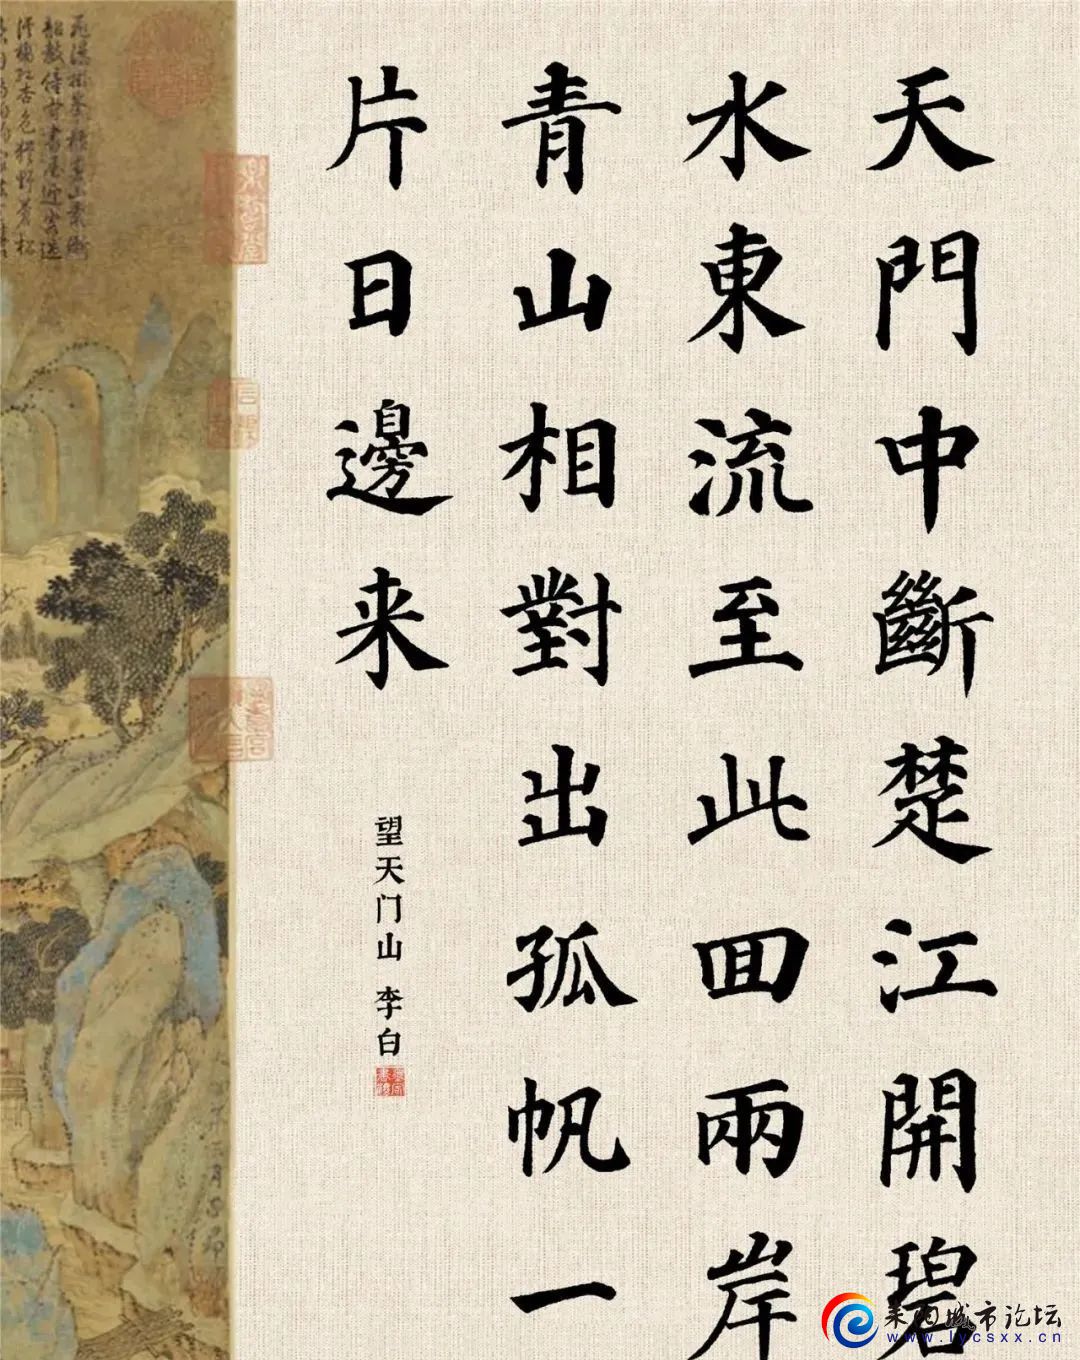 天門中斷楚江開碧
水東流至此回兩岸
青山相對出孤帆一
片日邊来
望天门山 李白
莱阳城市论坛
www.lycsxx.cn